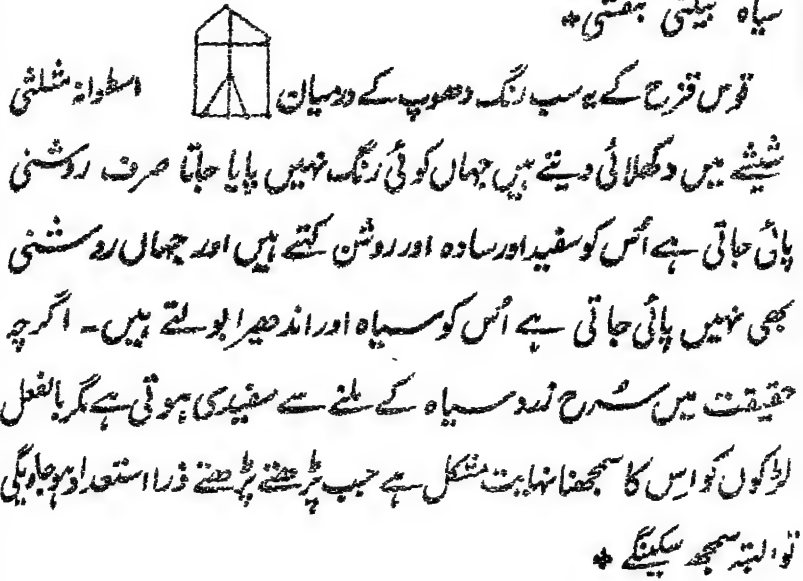 سیاہ بیگنی بنفشی*
قوس قزح کے یہ سب رنگ دھوپ کے درمیان اسطوانہ مثلثی
شیشے میں دکھلائی دیتے ہیں جہاں کوئی رنگ نہیں پایا جاتا صرف روشنی
پائی جاتی ہے اُس کو سفید اور سادہ اور روشن کہتے ہیں اور جہاں روشنی
بھی نہیں پائی جاتی ہے اُس کو سیاہ اور اندھیرا بولتے ہیں۔ اگرچہ
حقیقت میں سُرخ زرد سیاہ کے ملنے سے سفیدی ہوتی ہے مگر بالفعل
لڑکوں کو اِس کا سمجھنا نہایت مشکل ہے جب پڑھتے پڑھتے ذرا استعداد ہو جاویگی
تو البتہ سمجھ سکینگے *